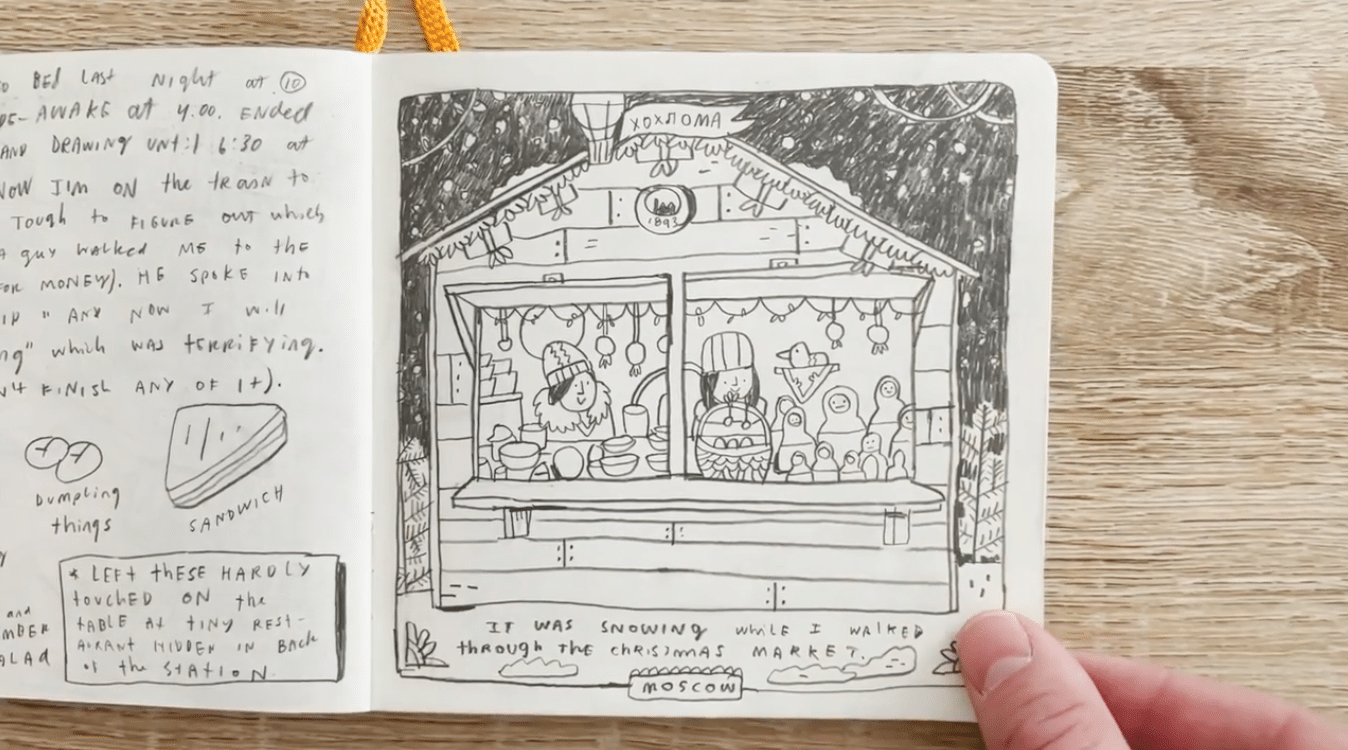 BED LAST NIGHT at 10
AWAKE at 4.00. ENDED
AND DRAWING UNTIL 6:30 at
NOW I'M ON the tRAIN to
TOUGH to FIGURE OUT which
A guy WALKED ME to the
FOR MONEY). HE SPOKE INto
" ANY NOW I will
" which WAS tERRIFYING.
FINISH ANY OF It).
DUMPLING
things
SANDWICH
* LEFT thESE HARDLY
touchED ON the
tABLE At tINY REST-
AURANT HIDDEN IN BACK
OF the StAtION.
and
ХОХЛОМА
1893
IT WAS SNOWING WHILE I WALKED
through THE christmas MARKET.
MOSCOW